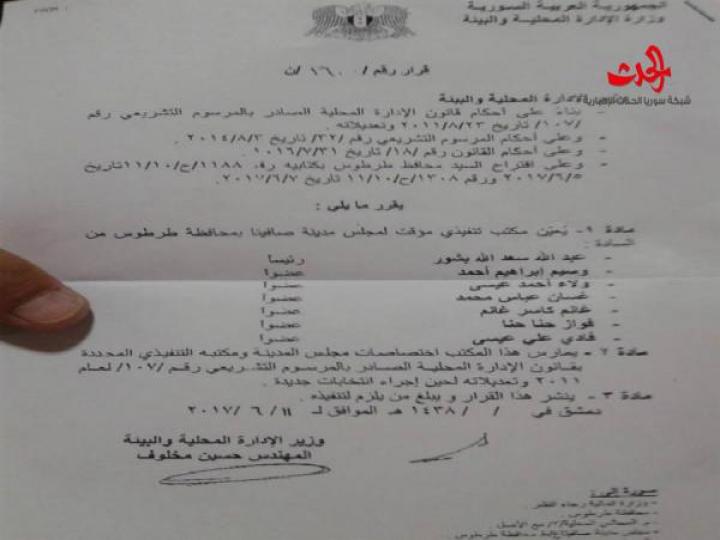 الجمهورية العربية السورية
وزارة الإدارة المحلية والبيئة
قرار رقم / ١٦٠٠ /ن
الحدث
شبكة سوريا الحدث الإخبارية
الإدارة المحلية والبيئة
- بناءً على أحكام قانون الإدارة المحلية الصادر بالمرسوم التشريعي رقم
/١٠٧/ تاريخ ٢٠١١/٨/٢٣ وتعديلاته .
- وعلى أحكام المرسوم التشريعي رقم /٣٢/ تاريخ ٢٠١٤/٨/٣
- وعلى أحكام القانون رقم /١٨/ تاريخ ٢٠١٦/٧/٣١ .
- وعلى اقتراح السيد محافظ طرطوس بكتابيه رقم ١١٨٨/ح/١١/١٠ تاريخ
٢٠١٧/٦/٥ ورقم ١٣٠٨/ح/١١/١٠ تاريخ ٢٠١٧/٦/٧ .
يقرر ما يلي :
مادة ١- يُعيّن مكتب تنفيذي مؤقت لمجلس مدينة صافيتا بمحافظة طرطوس من
السادة :
- عبد الله سعد الله بشور رئيساً
- وسيم إبراهيم أحمد عضواً
- ولاء أحمد عيسى عضواً
- غسان عباس محمد عضواً
- غانم كاسر غانم عضواً
- فواز حنا حنا عضواً
- فادي علي عيسى عضواً
مادة ٢- يمارس هذا المكتب اختصاصات مجلس المدينة ومكتبه التنفيذي المحددة
بقانون الإدارة المحلية الصادر بالمرسوم التشريعي رقم /١٠٧/ لعام
٢٠١١ وتعديلاته لحين إجراء انتخابات جديدة .
مادة ٣- ينشر هذا القرار و يبلغ من يلزم لتنفيذه .
دمشق في / / ١٤٣٨ هـ الموافق لـ ١١ / ٦ / ٢٠١٧
وزير الإدارة المحلية والبيئة
المهندس حسين مخلوف
صورة إلى :
- وزارة المالية رجاء النشر
- محافظة طرطوس
- المجالس المحلية /٢/ مع الأصل